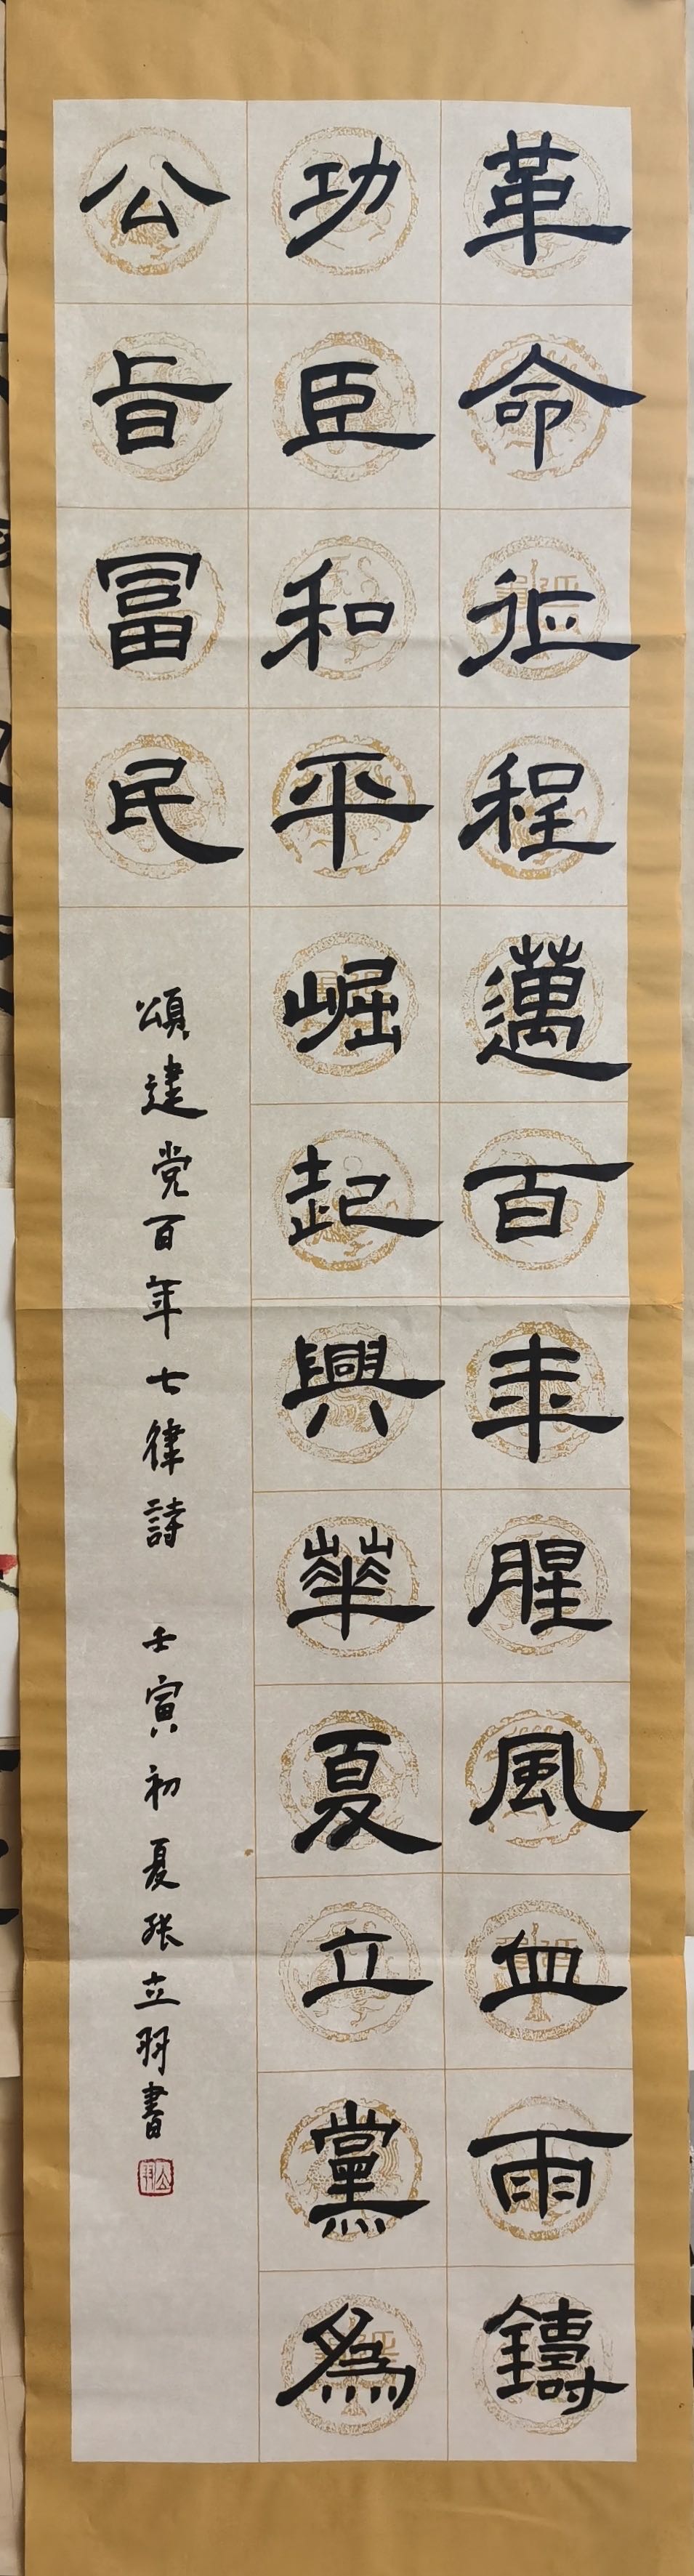 革命征程邁百年腥風血雨鑄
功臣和平崛起興華夏立黨為
公旨冨民
頌建党百年七律詩 壬寅初夏张立羽書